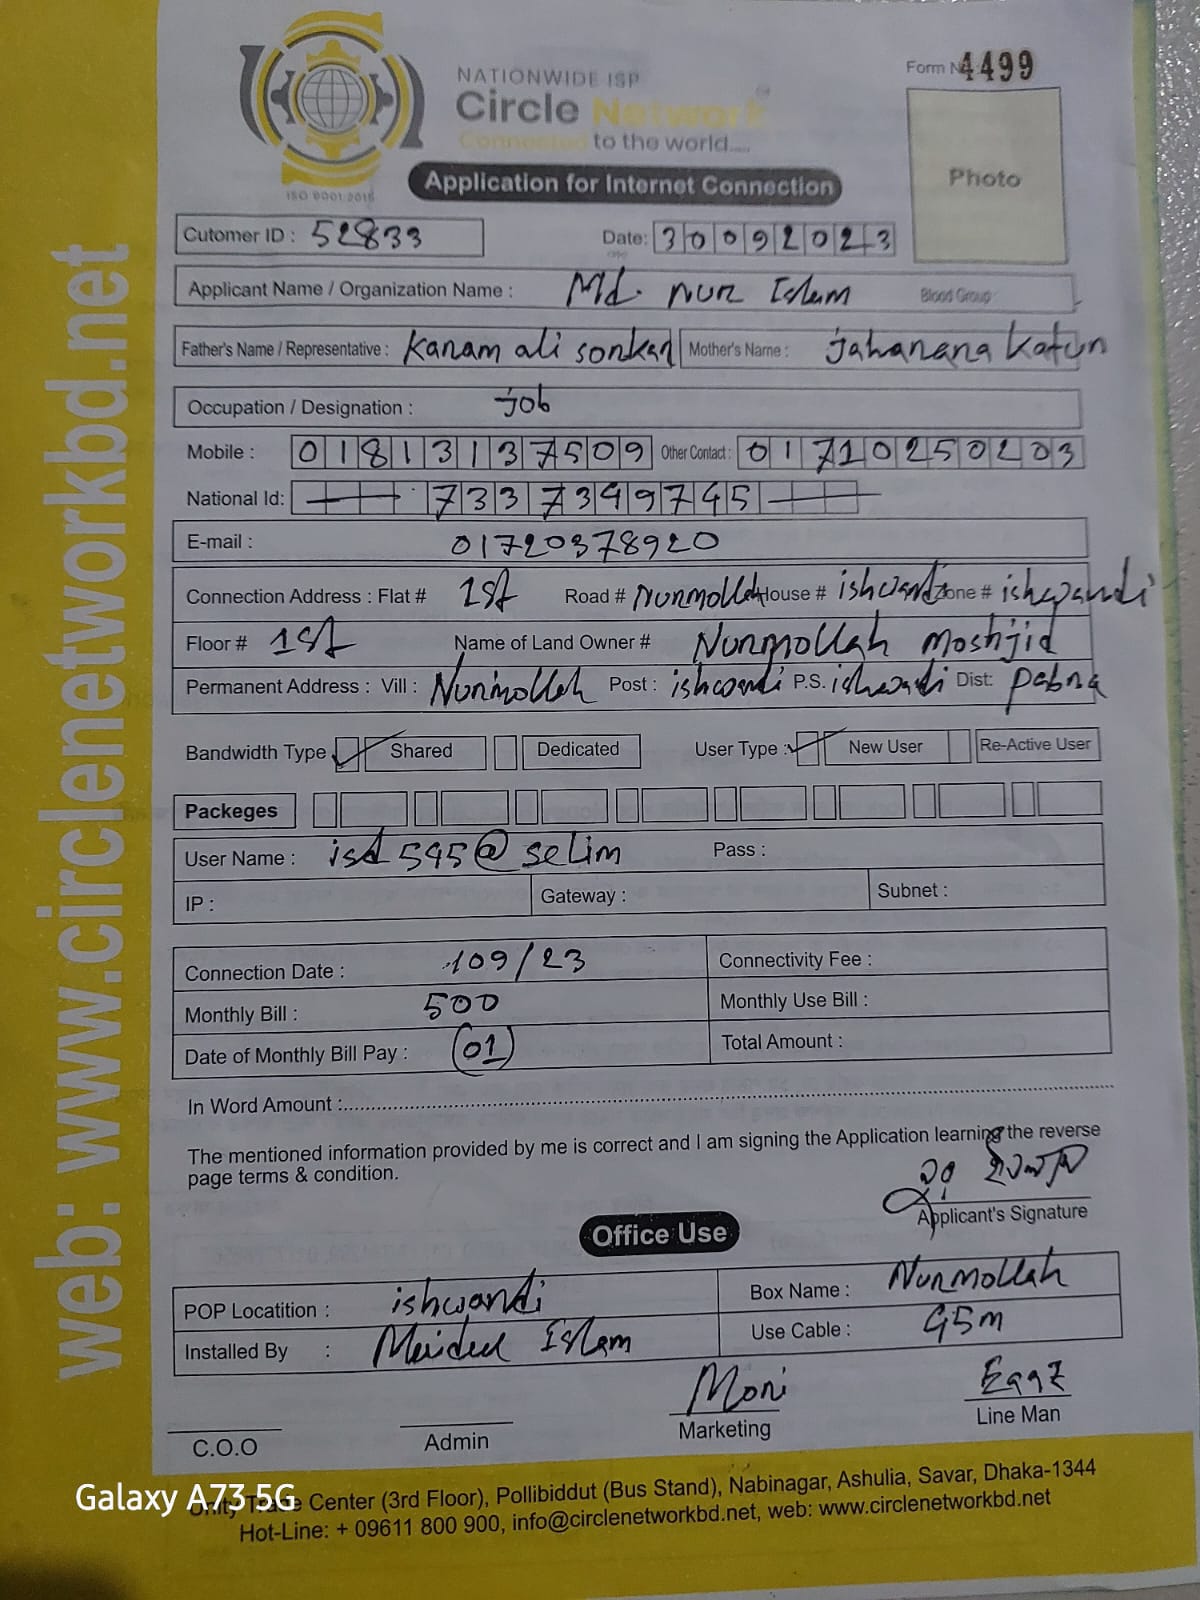 Form No 4499
NATIONWIDE ISP
Circle Network
Connected to the world.....
ISO 9001:2015
Application for Internet Connection
Photo
Cutomer ID : 52833
Date: 30092023
Applicant Name / Organization Name : Md. nur Islam Blood Group
Father's Name / Representative : Karam ali sonkar Mother's Name : jahanara Katun
Occupation / Designation : job
Mobile : 01813137509 Other Contact : 01710250203
National Id: 7337399745
E-mail : 01720378920
Connection Address : Flat # 1st Road # Nurmollah House # ishwardi Zone # ishwardi
Floor # 1st Name of Land Owner # Nurmollah moshjid
Permanent Address : Vill : Nurmollah Post : ishwardi P.S. ishwardi Dist: pabna
Bandwidth Type Shared Dedicated User Type : New User Re-Active User
Packeges
User Name : isd 595@selim Pass :
IP : Gateway : Subnet :
Connection Date : 109/23 Connectivity Fee :
Monthly Bill : 500 Monthly Use Bill :
Date of Monthly Bill Pay : 01 Total Amount :
In Word Amount :
The mentioned information provided by me is correct and I am signing the Application learning the reverse
page terms & condition.
Applicant's Signature
Office Use
POP Locatition : ishwardi Box Name : Nurmollah
Installed By : Islam Use Cable : 95m
Moni
C.O.O Admin Marketing Line Man
Unity Trade Center (3rd Floor), Pollibiddut (Bus Stand), Nabinagar, Ashulia, Savar, Dhaka-1344
Hot-Line: + 09611 800 900, info@circlenetworkbd.net, web: www.circlenetworkbd.net
web: www.circlenetworkbd.net
Galaxy A73 5G